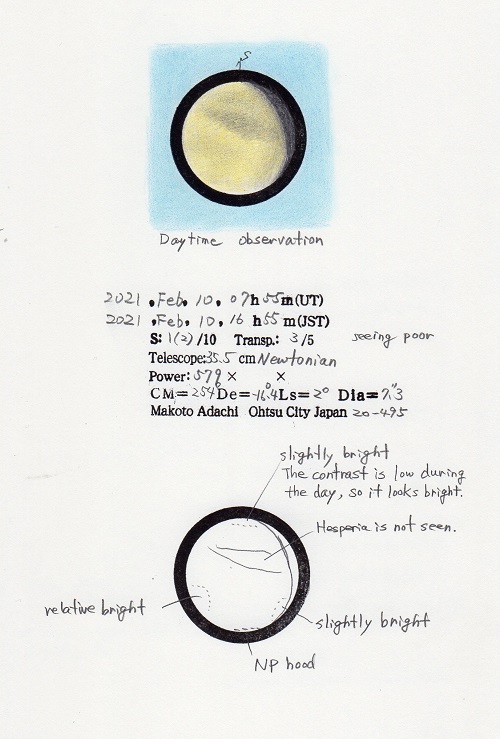 S
Daytime observation
2021, Feb, 10, 07h 55m (UT)
2021, Feb, 10, 16h 55m (JST)
S: 1(2)/10 Transp.: 3/5 seeing poor
Telescope: 35.5 cm Newtonian
Power: 579 × ×
CM= 254° De= -16.4 Ls= 2° Dia= 7.3"
Makoto Adachi Ohtsu City Japan 20-495
slightly bright
The contrast is low during
the day, so it looks bright.
Hesperia is not seen.
relative bright
slightly bright
NP hood